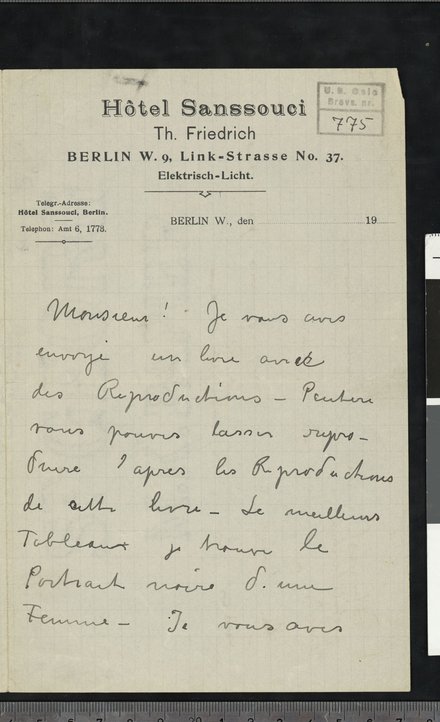 U. B. Oslo
Brevs. nr.
775
Hôtel Sanssouci
Th. Friedrich
BERLIN W. 9, Link-Strasse No. 37.
Elektrisch-Licht.
Telegr.-Adresse:
Hôtel Sanssouci, Berlin.
Telephon: Amt 6, 1778.
BERLIN W., den 19
Monsieur! Je vous avis
envoyé un livre avec
des Reproductions – Peutere
vous pouves lasser repro–
duire d'apres les Reproductions
de cette livre – Le meilleurs
Tableaux je trouve le
Portrait noire d'une
Femme – Je vous aves